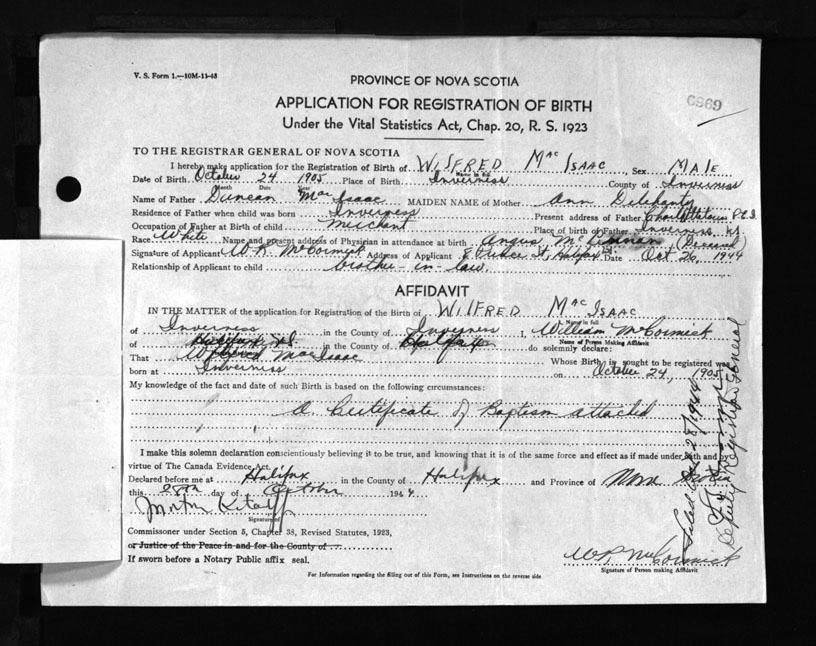 V. S. Form 1.—10M-11-43
PROVINCE OF NOVA SCOTIA
APPLICATION FOR REGISTRATION OF BIRTH
Under the Vital Statistics Act, Chap. 20, R. S. 1923
TO THE REGISTRAR GENERAL OF NOVA SCOTIA
I hereby make application for the Registration of Birth of WILFRED MAC ISAAC, Sex MALE
Name in full
Date of Birth October 24 1905 Place of Birth Inverness County of Inverness
Month Date Year
Name of Father Duncan Mac Isaac MAIDEN NAME of Mother Ann Delehanty
Residence of Father when child was born Inverness Present address of Father Charlottetown P.E.I.
Occupation of Father at Birth of child Merchant Place of birth of Father Inverness, N.S.
Race White Name and present address of Physician in attendance at birth Angus McLennan (Deceased)
Signature of Applicant W. R. McCormick Address of Applicant St, Halifax Date Oct 26, 1944
Relationship of Applicant to child brother-in-law
AFFIDAVIT
IN THE MATTER of the application for Registration of the Birth of WILFRED MAC ISAAC
Name in full
of Inverness in the County of Inverness I, William McCormick
Name of Person Making Affidavit
of Halifax N.S. in the County of Halifax do solemnly declare:
That Wilfred MacIsaac Whose Birth is sought to be registered was
born at Inverness on October 24, 1905
My knowledge of the fact and date of such Birth is based on the following circumstances:
A Certificate of Baptism attached
I make this solemn declaration conscientiously believing it to be true, and knowing that it is of the same force and effect as if made under oath and by
virtue of The Canada Evidence Act.
Declared before me at Halifax in the County of Halifax and Province of Nova Scotia
this 28th day of October 1944
Signature of
Commissioner under Section 5, Chapter 38, Revised Statutes, 1923,
or Justice of the Peace in and for the County of
If sworn before a Notary Public affix seal.
W R McCormick
Signature of Person making Affidavit
For Information regarding the filling out of this Form, see Instructions on the reverse side
Filed Oct 28/1944
Deputy Registrar General